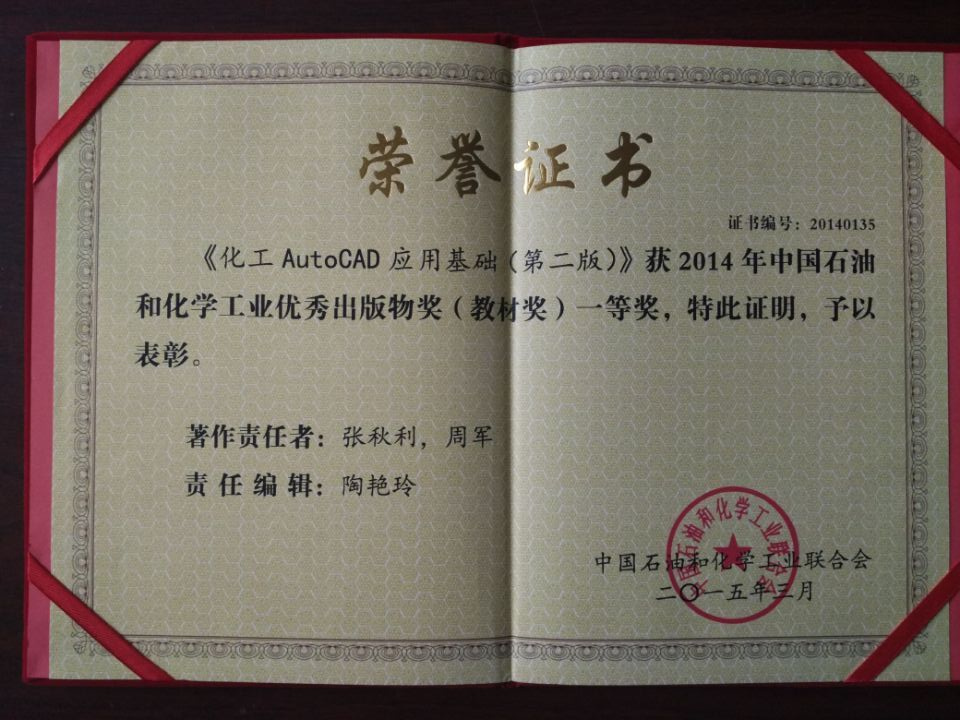 荣誉证书
证书编号：20140135
《化工 AutoCAD 应用基础（第二版）》获 2014 年中国石油
和化学工业优秀出版物奖（教材奖）一等奖，特此证明，予以
表彰。
著作责任者：张秋利，周军
责任编辑：陶艳玲
中国石油和化学工业联合会
中国石油和化学工业联合会
二〇一五年三月